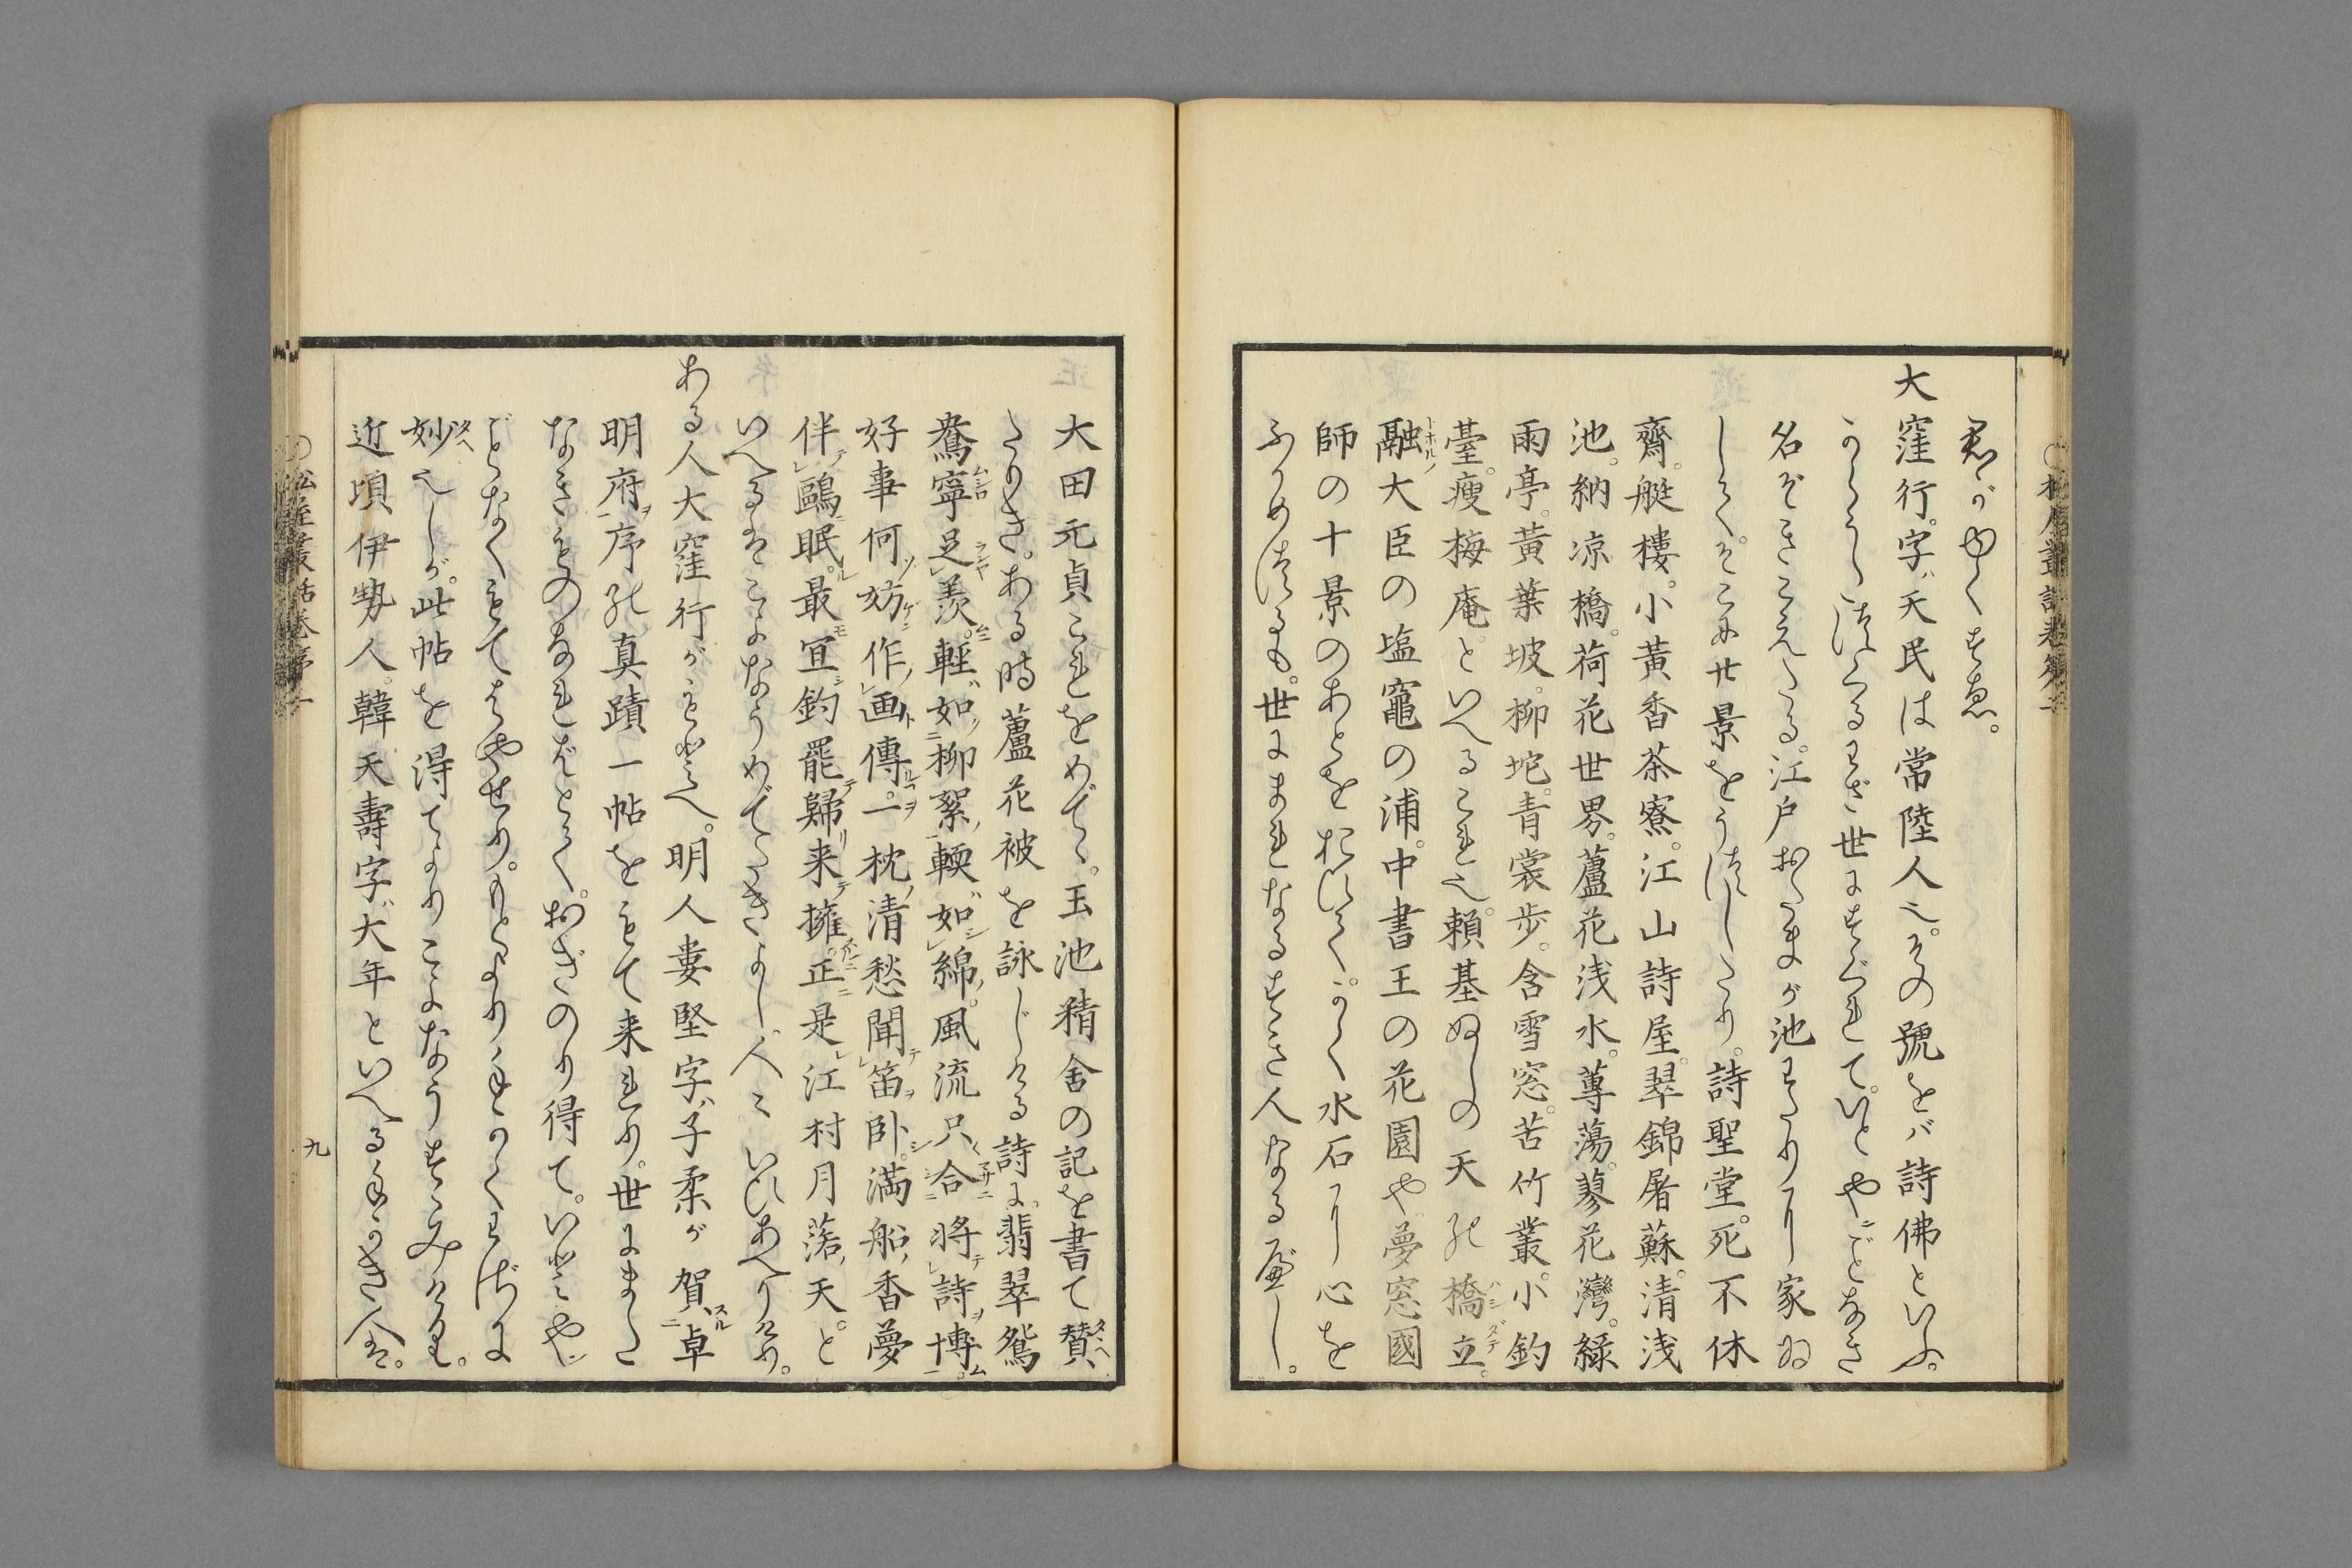 君がゆくすゑ。
大窪行。字ハ天民は常陸人也。その號をバ詩佛といふ。
からうたつくるわざ世にすぐれて。いとやごとなき
名なもきこえたる。江戸おたまが池のわたりに家ゐ
してそこに廿景をうつしたり。詩聖堂。死不休
齋。艇樓。小黃香茶寮。江山詩屋。翠錦屠蘇。清浅
池。納凉橋。荷花世界。蘆花浅水。蓴蕩。蓼花灣。緑
雨亭。黃葉坡。柳垞。青裳歩。含雪窓。苦竹叢。小釣
臺。瘦梅庵。といへるこれ也。賴基ぬしの天の橋立。
融大臣の塩竈の浦。中書王の花園や。夢窓國
師の十景のあとをおひて。かく水石に心を
ふかめたるも。世にまれなるすき人なるべし。
大田元貞これをめでて。玉池精舎の記を書て賛
たりき。ある時蘆花被を詠じける詩に。翡翠鴛
鴦寧足羨。軽如柳絮輭如綿。風流只合將詩博。
好事何妨作画傳。一枕清愁聞笛卧。満船香夢
伴鷗眠。最宜釣罷歸来擁。正是江村月落天。と
いへるはこよなうめでたきよし。人々いひあへりけり。
ある人大窪行がもとへ。明人婁堅字ハ子柔が賀卓
明府序の真蹟一帖をもて来れり。世にまた
なきものなればとて。おぎのり得て。いとやン
ごとなくもてはやせり。もとより手かくわざに
妙也しが。此帖を得てよりこよなうすゝみけり。
近頃伊勢人。韓天壽字ハ大年といへる手かき人は。
九